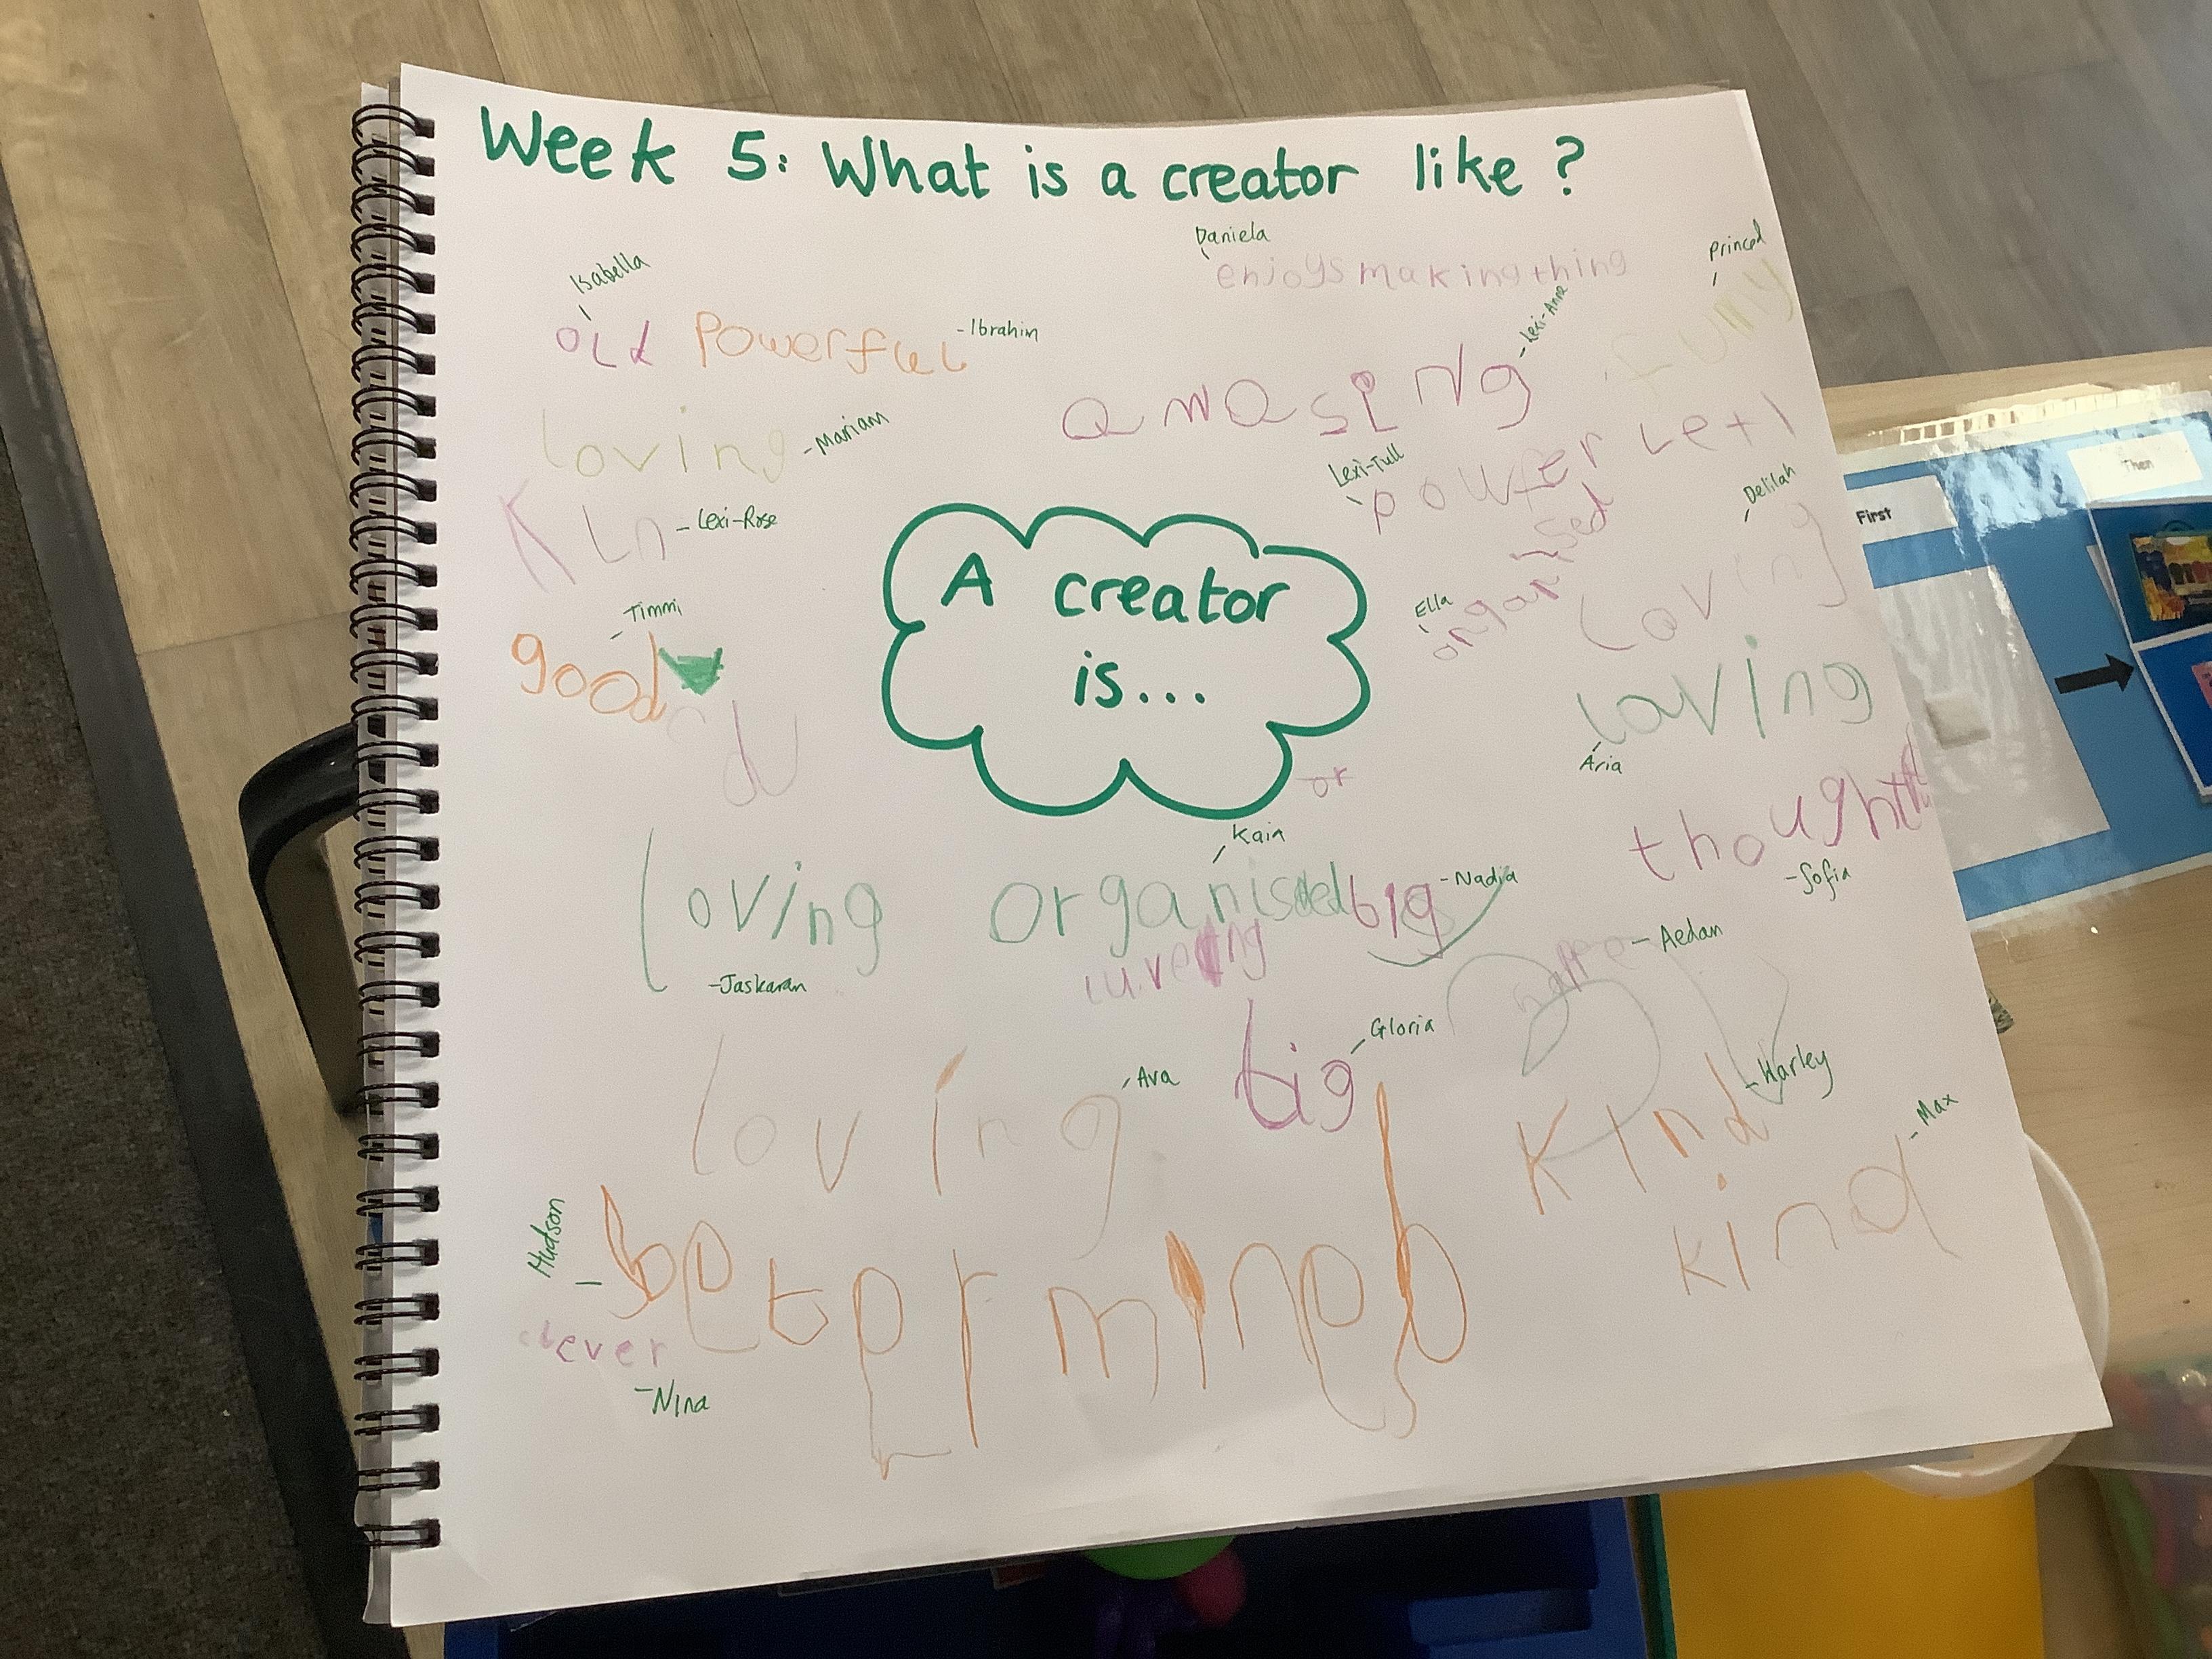 Week 5: What is a creator like?
Daniela
enjoys making thing
Isabella
old powerful -Ibrahim
amasing -Lexi-Anne
loving -Mariam
Lexi-Tull
Kin -Lexi-Rose
Delilah
Loving
A creator
is...
Timmi
good
Ella
loving
Aria
or
thought
-Sofia
Kain
loving organised big -Nadia
-Jaskaran
-Aedan
loving
Ava
big
Gloria
Kind -Harley
kind -Max
Hudson
determineb
clever
-Nina
First
Then